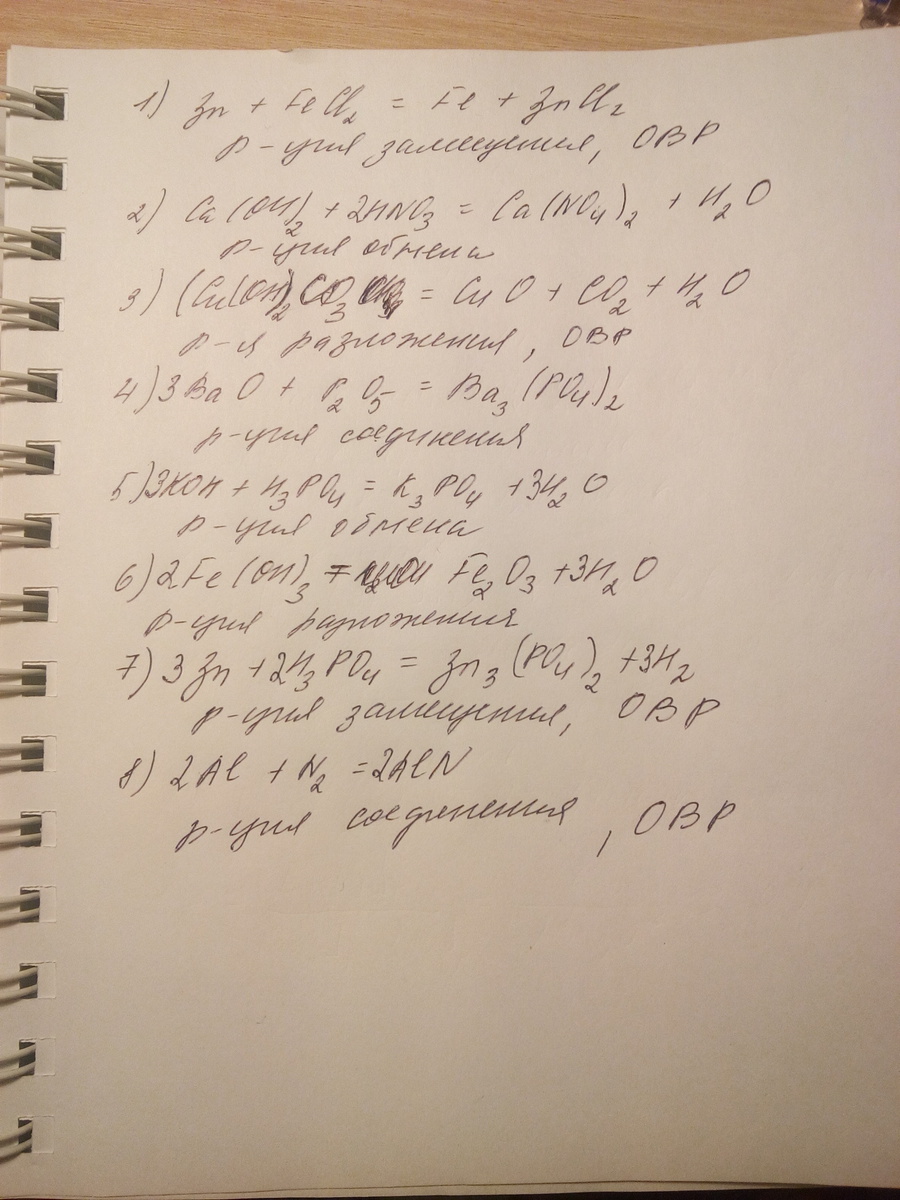 1) Zn + FeCl₂ = Fe + ZnCl₂
р-ция замещения, ОВР
2) Ca(OH)₂ + 2HNO₃ = Ca(NO₄)₂ + H₂O
р-ция обмена
3) (Cu(OH)₂CO₃ = CuO + CO₂ + H₂O
р-я разложения, ОВР
4) 3BaO + P₂O₅ = Ba₃(PO₄)₂
р-ция соединения
5) 3KOH + H₃PO₄ = K₃PO₄ + 3H₂O
р-ция обмена
6) 2Fe(OH)₃ = Fe₂O₃ + 3H₂O
р-ция разложения
7) 3Zn + 2H₃PO₄ = Zn₃(PO₄)₂ + 3H₂
р-ция замещения, ОВР
8) 2Al + N₂ = 2AlN
р-ция соединения, ОВР